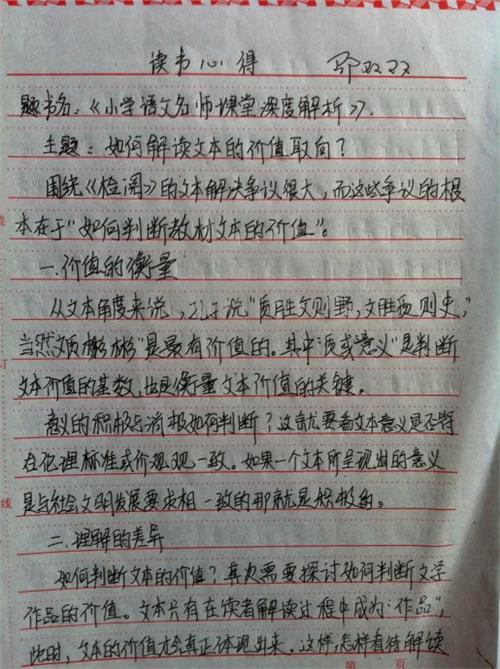 读书心得 邓双双
题书名：《小学语文名师课堂深度解析》.
主题：如何解读文本的价值取向？
围绕《检阅》的文本解决争议很大，而这些争议的根
本在于"如何判断教材文本的价值"。
一.价值的衡量
从文本角度来说，孔子说"质胜文则野，文胜质则史，"
当然文质彬彬"是最有价值的。其中质或意义"是判断
文本价值的基数，也是衡量文本价值的关键。
意义的积极与消极如何判断？这就要看文本意义是否符
在伦理标准或价观观一致。如果一个文本所呈现出的意义
是与社会文明发展要求相一致的那就是积极的。
二.理解的差异
如何判断文本的价值？其次需要探讨如何判断文学
作品的价值。文本只有在读者解读过程中成为"作品"，
此时，文本的价值才会真正体现出来。这样，怎样看待解读
线
第 页